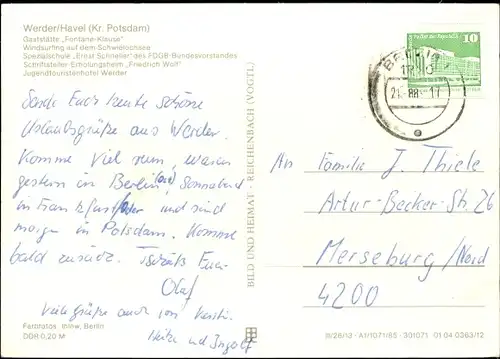 Werder/Havel (Kr. Potsdam)
Gaststätte „Fontane-Klause“
Windsurfing auf dem Schwielochsee
Spezialschule „Ernst Schneller“ des FDGB-Bundesvorstandes
Schriftsteller-Erholungsheim „Friedrich Wolf“
Jugendtouristenhotel Werder
Sende Euch heute schöne
Urlaubsgrüße aus Werder.
Komme viel rum, waren
gestern in Berlin, Sonnabend
in Frankfurt/Oder und sind
morgen in Potsdam. Komme
bald zurück. Tschüß Euer
Olaf
Viele Grüße auch von
Heike und
Farbfotos: Ihlow, Berlin
DDR 0,20 M
BILD UND HEIMAT REICHENBACH (VOGTL)
10
BERLIN
88 - 17
An Familie J. Thiele
Artur-Becker-Str. 26
Merseburg/Nord
4200
III/26/13 A1/1071/85 301071 01 04 0263/12